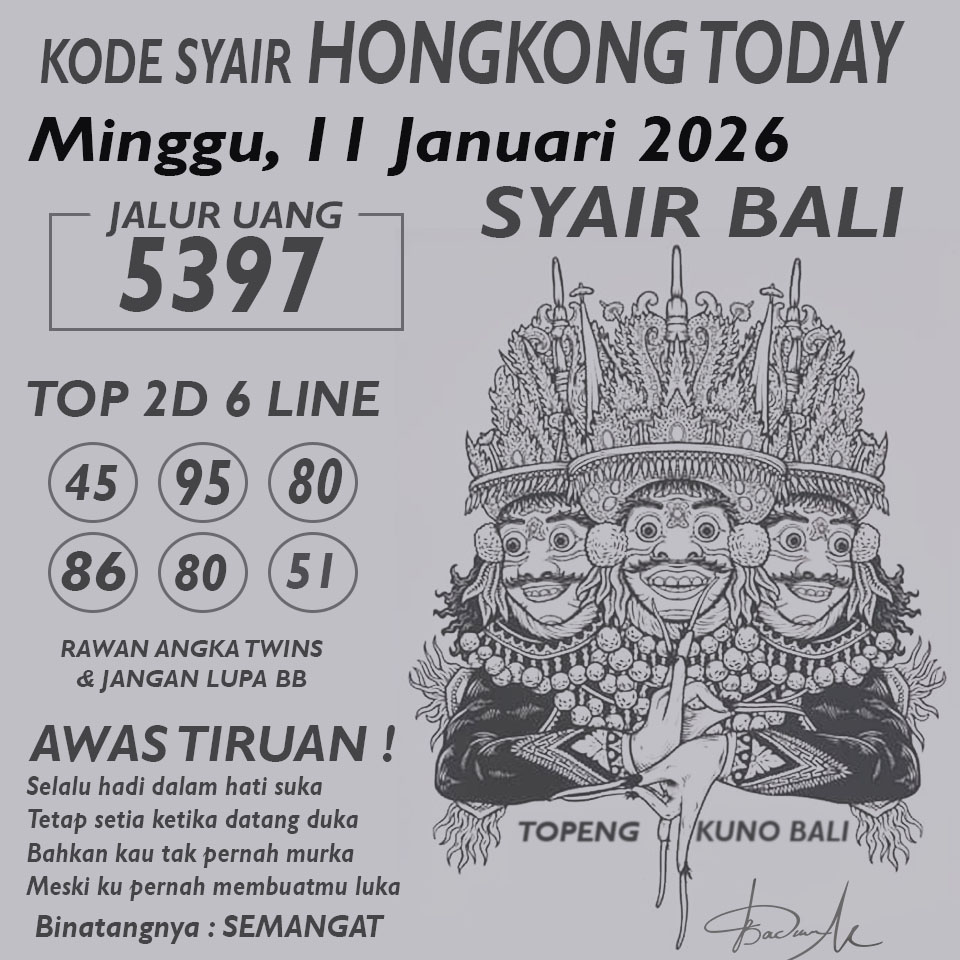 KODE SYAIR HONGKONG TODAY
Minggu, 11 Januari 2026
SYAIR BALI
JALUR UANG
5397
TOP 2D 6 LINE
45 95 80
86 80 51
RAWAN ANGKA TWINS
& JANGAN LUPA BB
AWAS TIRUAN !
Selalu hadi dalam hati suka
Tetap setia ketika datang duka
Bahkan kau tak pernah murka
Meski ku pernah membuatmu luka
Binatangnya : SEMANGAT
TOPENG KUNO BALI